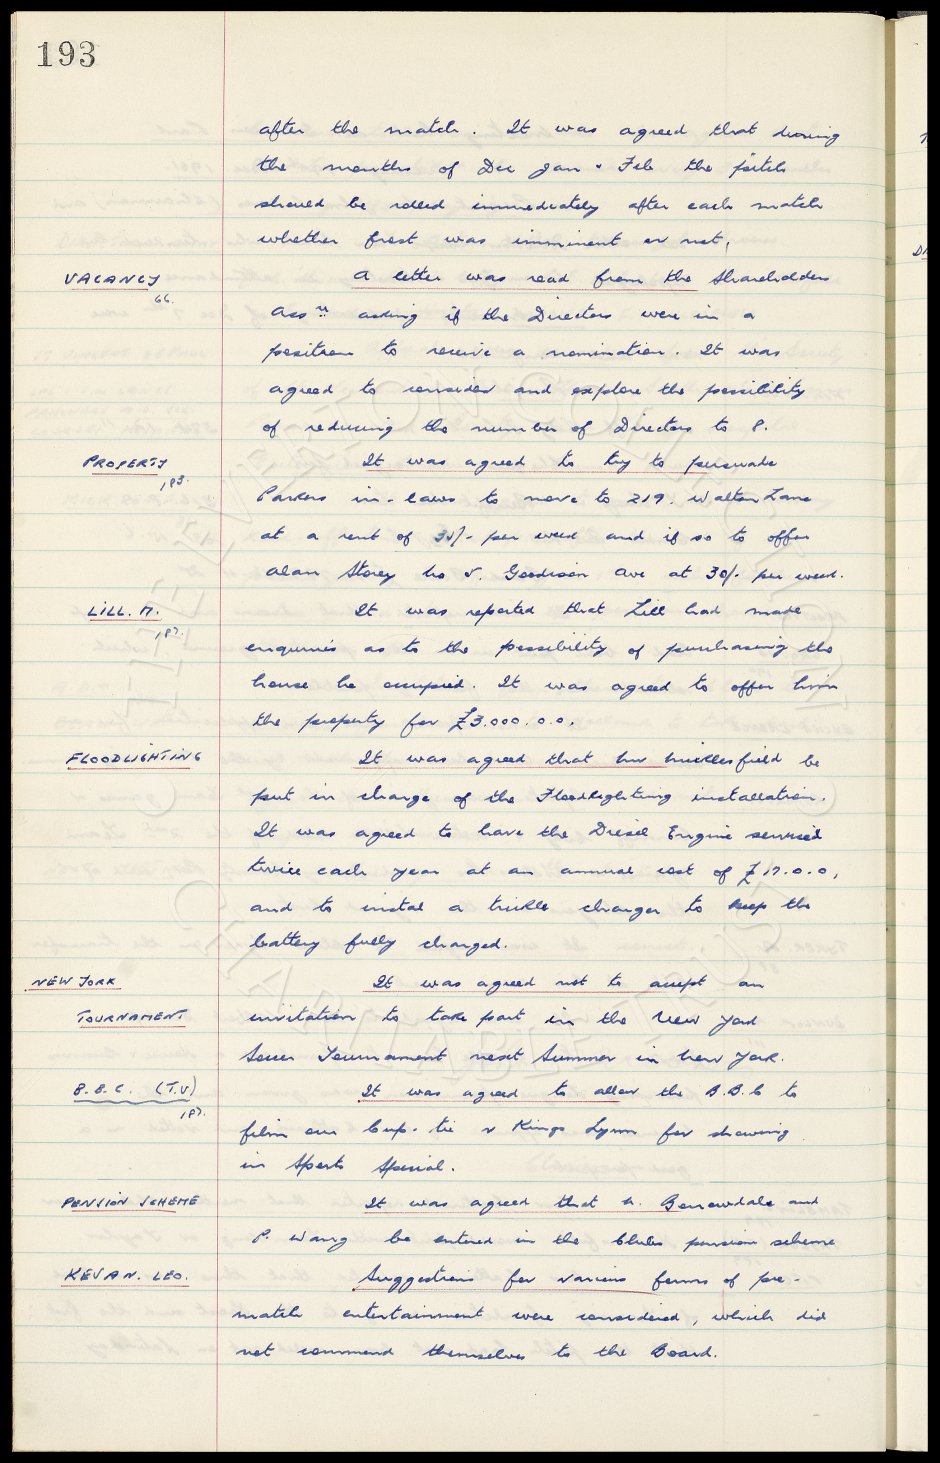 193
after the match. It was agreed that during
the months of Dec Jan & Feb the pitch
should be rolled immediately after each match
whether frost was imminent or not.
VACANCY
66.
A letter was read from the Shareholders
Assn asking if the Directors were in a
position to receive a nomination. It was
agreed to consider and explore the possibility
of reducing the number of Directors to 8.
PROPERTY
183.
It was agreed to try to persuade
Parkers in-laws to move to 219. Walton Lane
at a rent of 30/- per week and if so to offer
Alan Storey no 5. Goodison Ave at 30/- per week.
LILL. M.
187.
It was reported that Lill had made
enquiries as to the possibility of purchasing the
house he occupied. It was agreed to offer him
the property for £3.000.0.0.
FLOODLIGHTING
It was agreed that Mr Micklesfield be
put in charge of the Floodlighting installation.
It was agreed to have the Diesel Engine serviced
twice each year at an annual cost of £17.0.0,
and to instal a trickle charger to keep the
battery fully charged.
NEW YORK
TOURNAMENT
It was agreed not to accept an
invitation to take part in the New York
Soccer Tournament next Summer in New York.
B.B.C. (T.V)
187.
It was agreed to allow the B.B.C to
film our Cup-tie v Kings Lynn for showing
in Sports Special.
PENSION SCHEME
It was agreed that H. Borrowdale and
P. Wang be entered in the Clubs pension scheme
KEVAN. LEO.
Suggestions for various forms of pre-
match entertainment were considered, which did
not commend themselves to the Board.